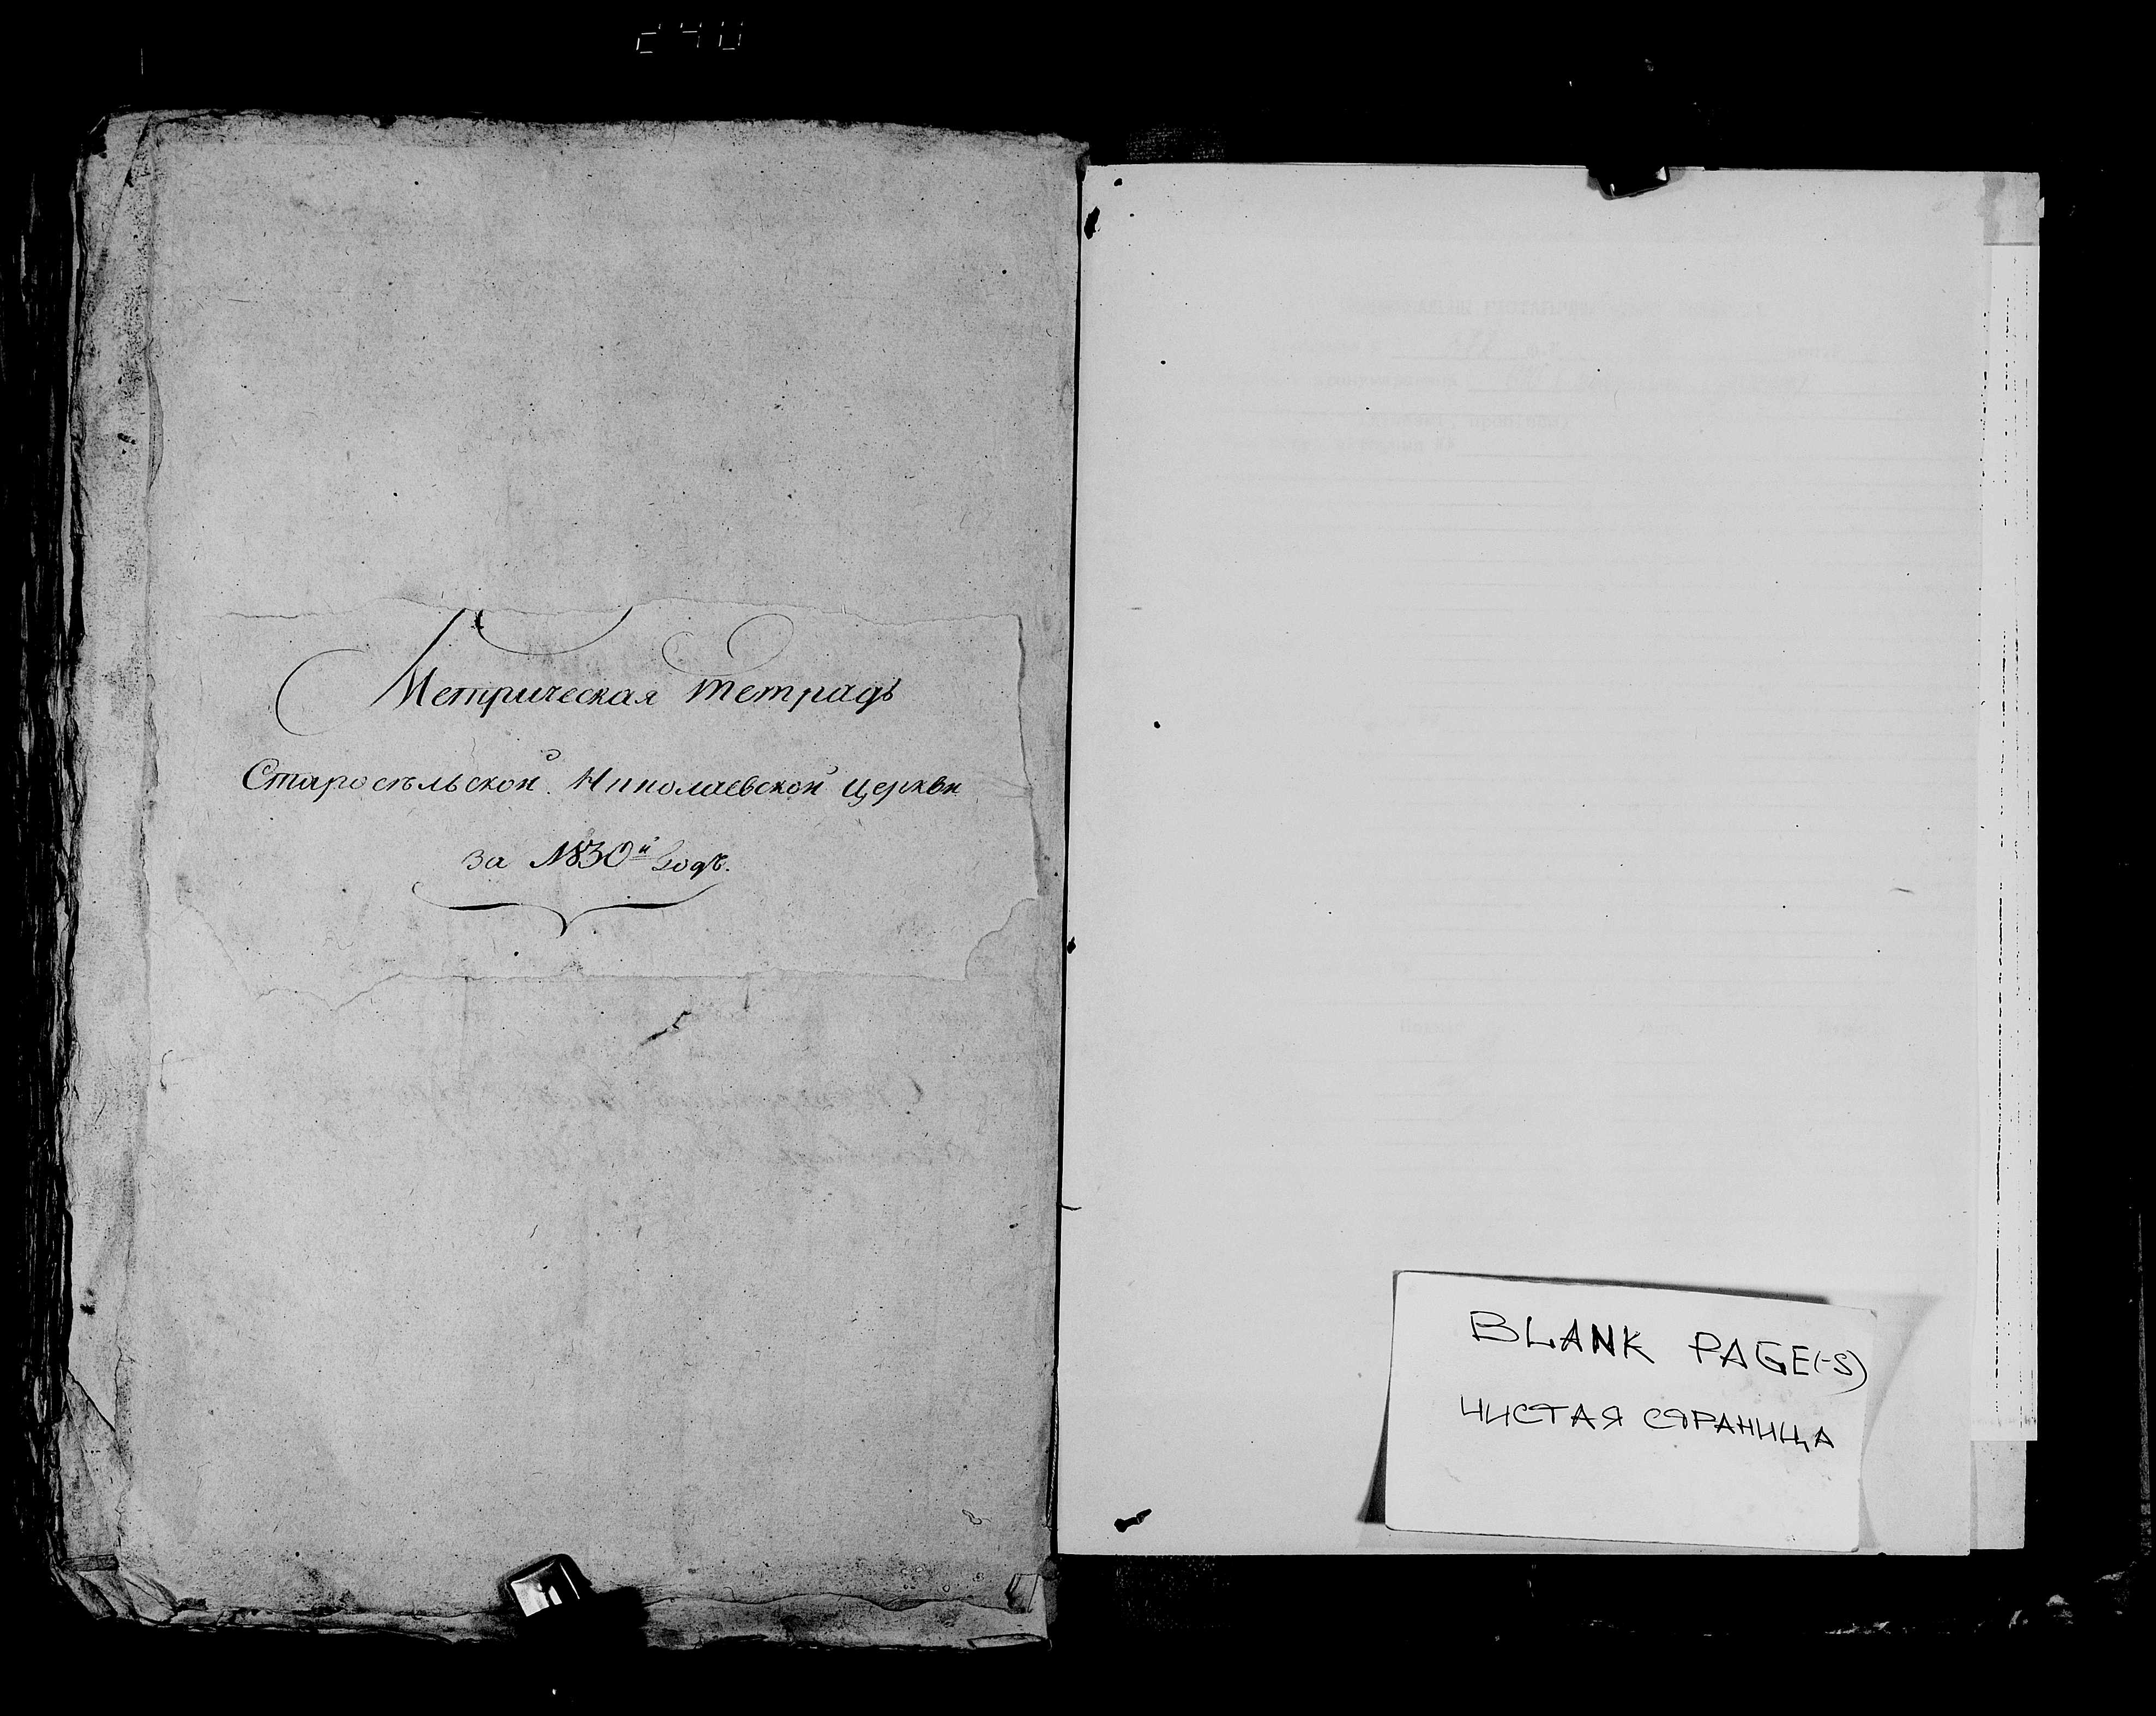 Метрическая тетрадь
Старосѣльской Николаевской церкви
за 1830й годъ.
BLANK PAGE(-S)
ЧИСТАЯ СТРАНИЦА